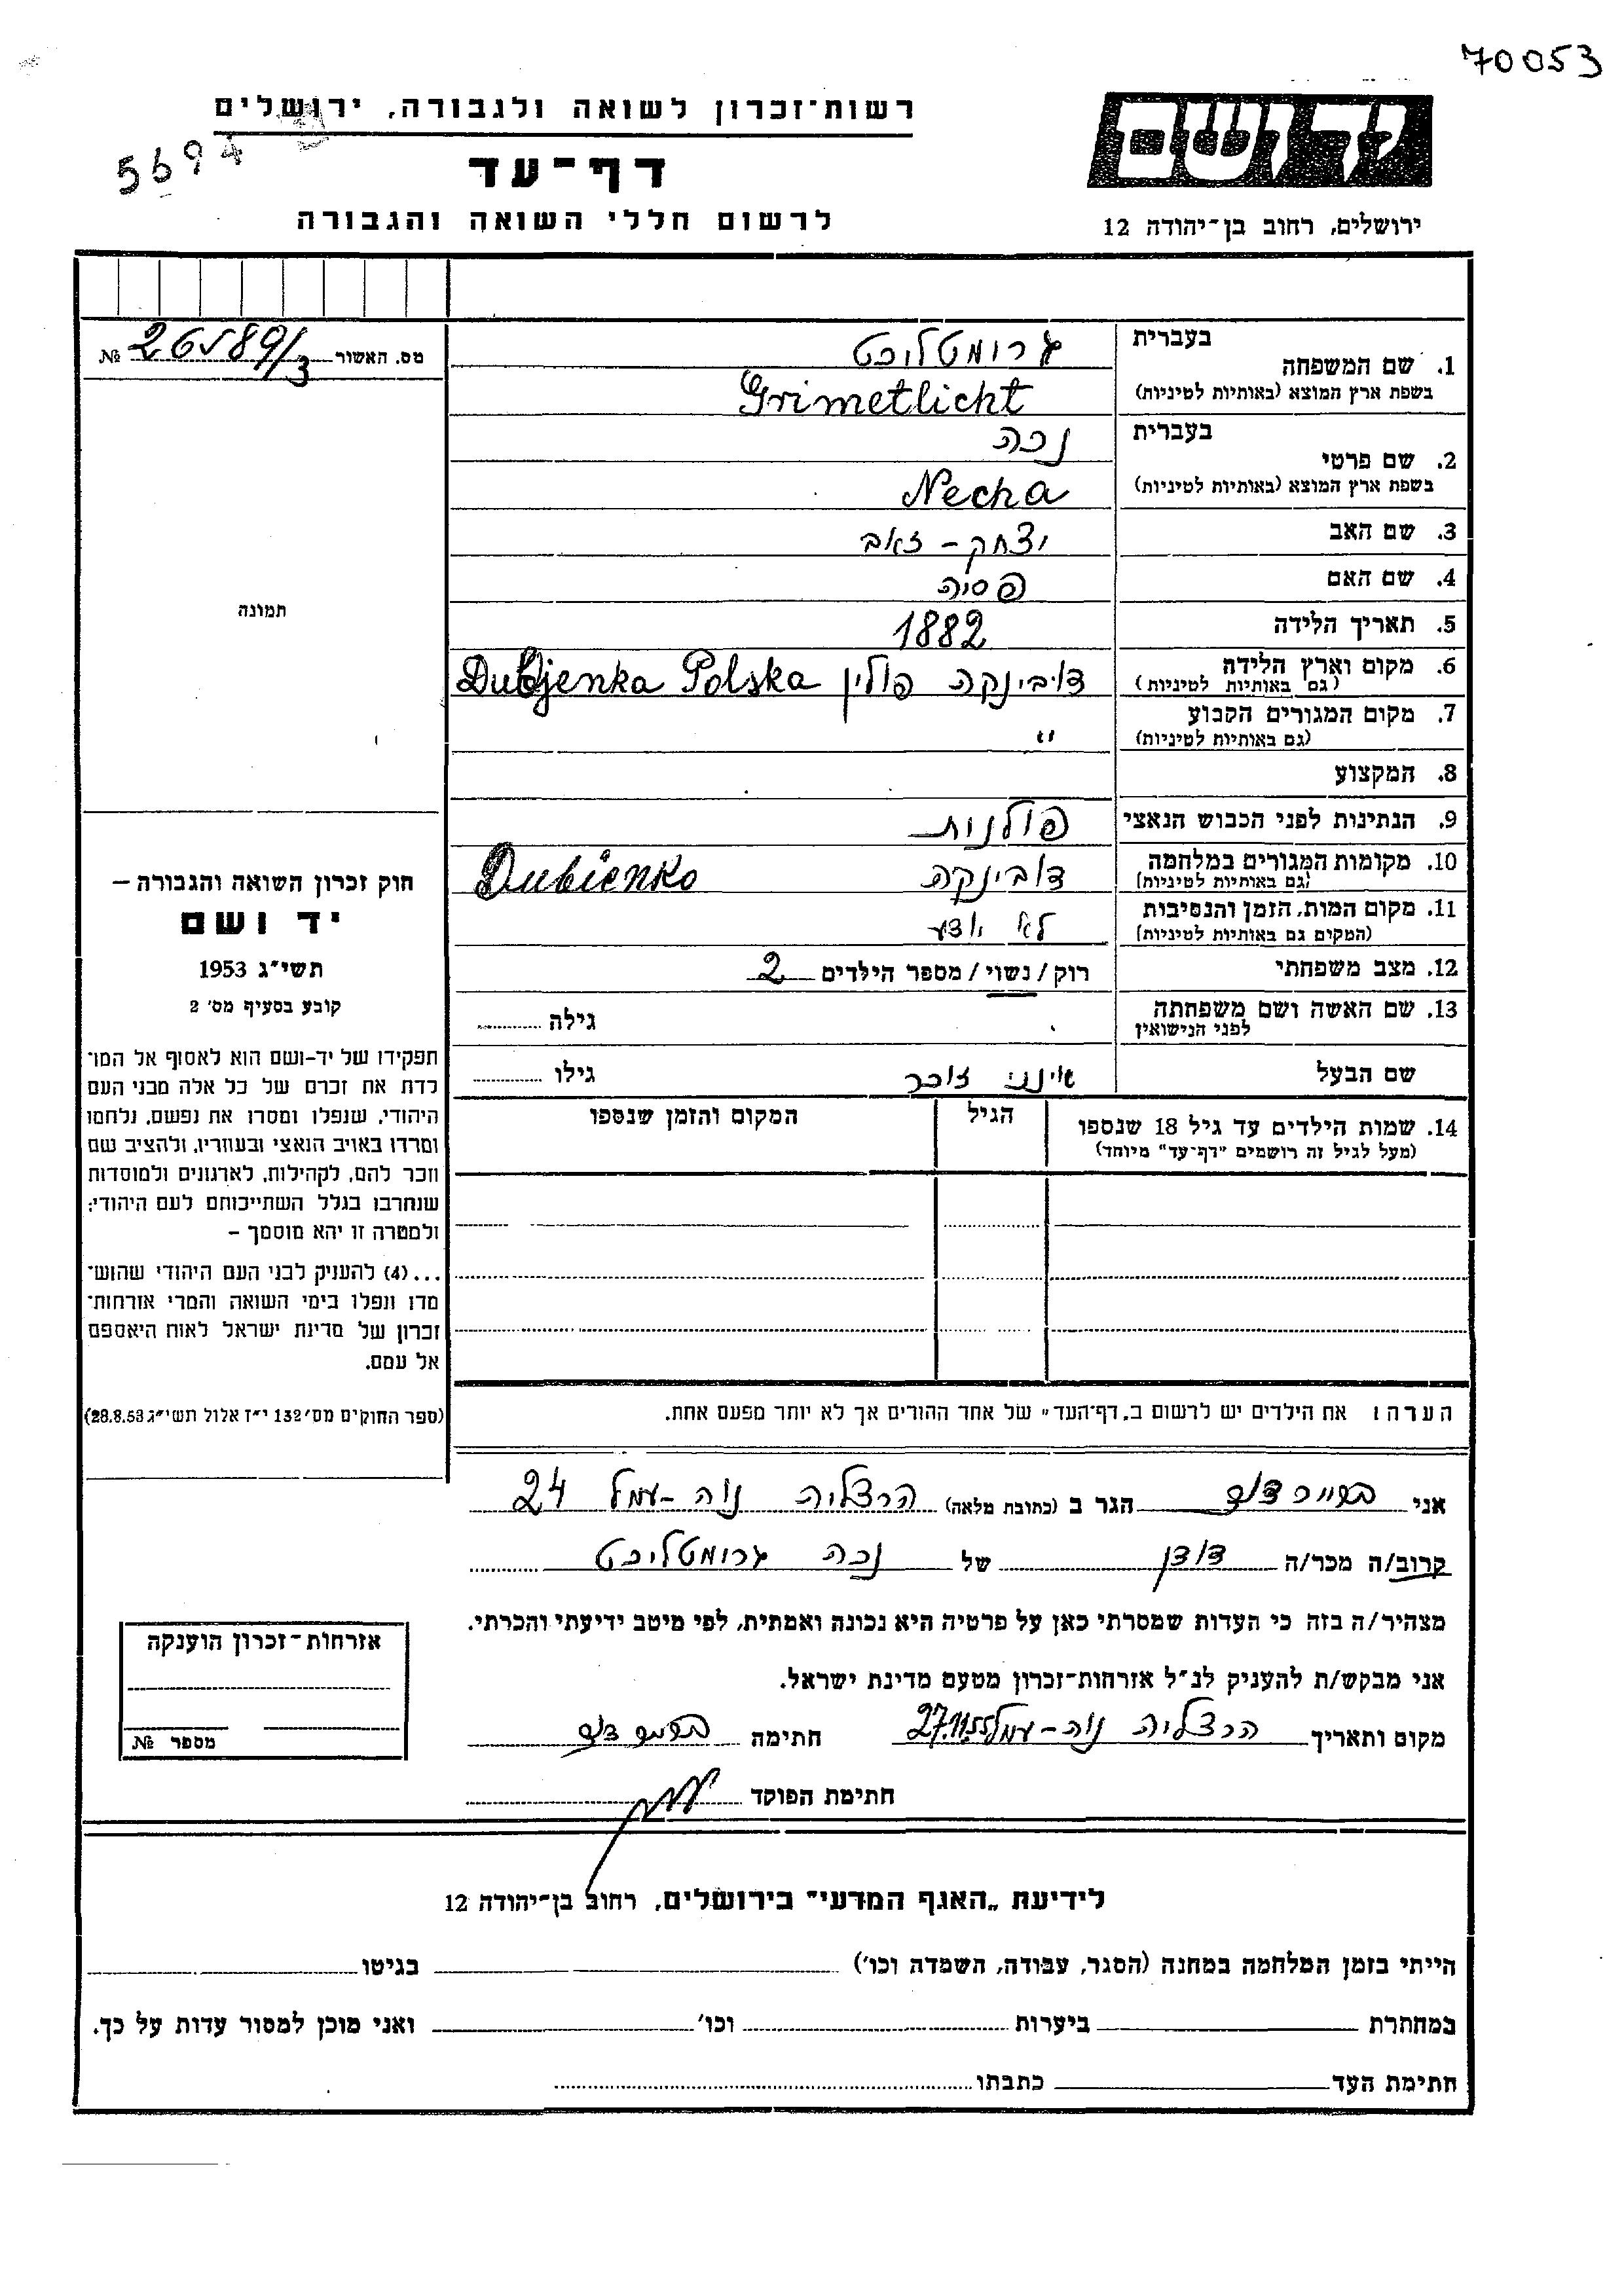 70053
יד ושם
רשות־זכרון לשואה ולגבורה, ירושלים
5694
דף־עד
לרשום חללי השואה והגבורה
ירושלים, רחוב בן־יהודה 12
מס. האשור 26589/3 №
תמונה
חוק זכרון השואה והגבורה –
יד ושם
תשי״ג 1953
קובע בסעיף מס׳ 2
תפקידו של יד-ושם הוא לאסוף אל המו־
לדת את זכרם של כל אלה מבני העם
היהודי, שנפלו ומסרו את נפשם, נלחמו
ומרדו באויב הנאצי ובעוזריו, ולהציב שם
וזכר להם, לקהילות, לארגונים ולמוסדות
שנחרבו בגלל השתייכותם לעם היהודי;
ולמטרה זו יהא מוסמך –
...(4) להעניק לבני העם היהודי שהוש־
מדו ונפלו בימי השואה והמרי אזרחות־
זכרון של מדינת ישראל לאות היאספם
אל עמם.
(ספר החוקים מס׳ 132 י״ז אלול תשי״ג 28.8.53)
1. שם המשפחה בעברית גרומטליכט
בשפת ארץ המוצא (באותיות לטיניות) Grimetlicht
2. שם פרטי בעברית נכה
בשפת ארץ המוצא (באותיות לטיניות) Necha
3. שם האב יצחק - זאב
4. שם האם פסיה
5. תאריך הלידה 1882
6. מקום וארץ הלידה (גם באותיות לטיניות) דובינקה פולין Dubjenka Polska
7. מקום המגורים הקבוע (גם באותיות לטיניות) "
8. המקצוע
9. הנתינות לפני הכבוש הנאצי פולנית
10. מקומות המגורים במלחמה (גם באותיות לטיניות) דובינקה Dubienko
11. מקום המות, הזמן והנסיבות (המקום גם באותיות לטיניות) לא יודע
12. מצב משפחתי רוק/נשוי/מספר הילדים 2
13. שם האשה ושם משפחתה לפני הנישואין גילה
שם הבעל אינני זוכר גילו
14. שמות הילדים עד גיל 18 שנספו הגיל המקום והזמן שנספו
(מעל לגיל זה רושמים "דף־עד" מיוחד)
הערה: את הילדים יש לרשום ב„דף־העד״ של אחד ההורים אך לא יותר מפעם אחת.
אני דוד הגר ב (כתובת מלאה) הרצליה נוה-עמל 24
קרוב/ה מכר/ה דודן של נכה גרומטליכט
מצהיר/ה בזה כי העדות שמסרתי כאן על פרטיה היא נכונה ואמתית, לפי מיטב ידיעתי והכרתי.
אני מבקש/ת להעניק לנ״ל אזרחות־זכרון מטעם מדינת ישראל.
מקום ותאריך הרצליה נוה-עמל 27.11.55 חתימה
חתימת הפוקד
אזרחות־זכרון הוענקה
מספר №
לידיעת „האגף המדעי״ בירושלים, רחוב בן־יהודה 12
הייתי בזמן המלחמה במחנה (הסגר, עבודה, השמדה וכו׳) בגיטו
במחתרת ביערות וכו׳ ואני מוכן למסור עדות על כך.
חתימת העד כתבתו